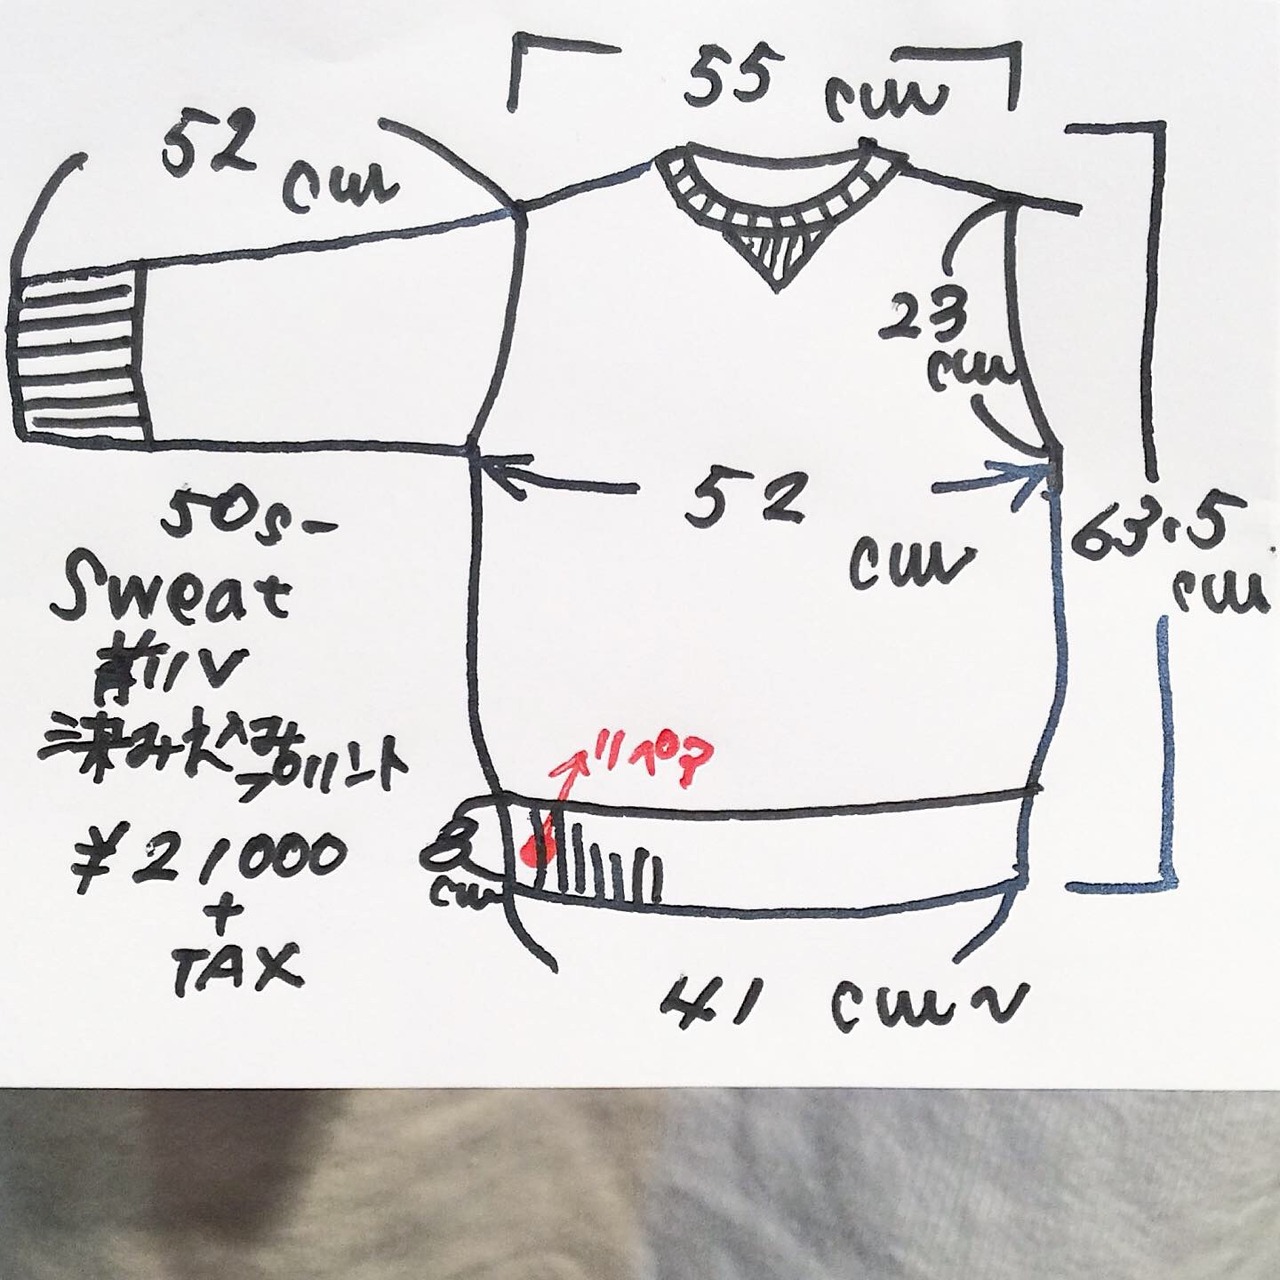 55 cm
52 cm
23 cm
52 cm
63.5 cm
50s-
Sweat
前V
染み込み
プリント
¥21000
+
TAX
リペ?
8 cm
41 cm~